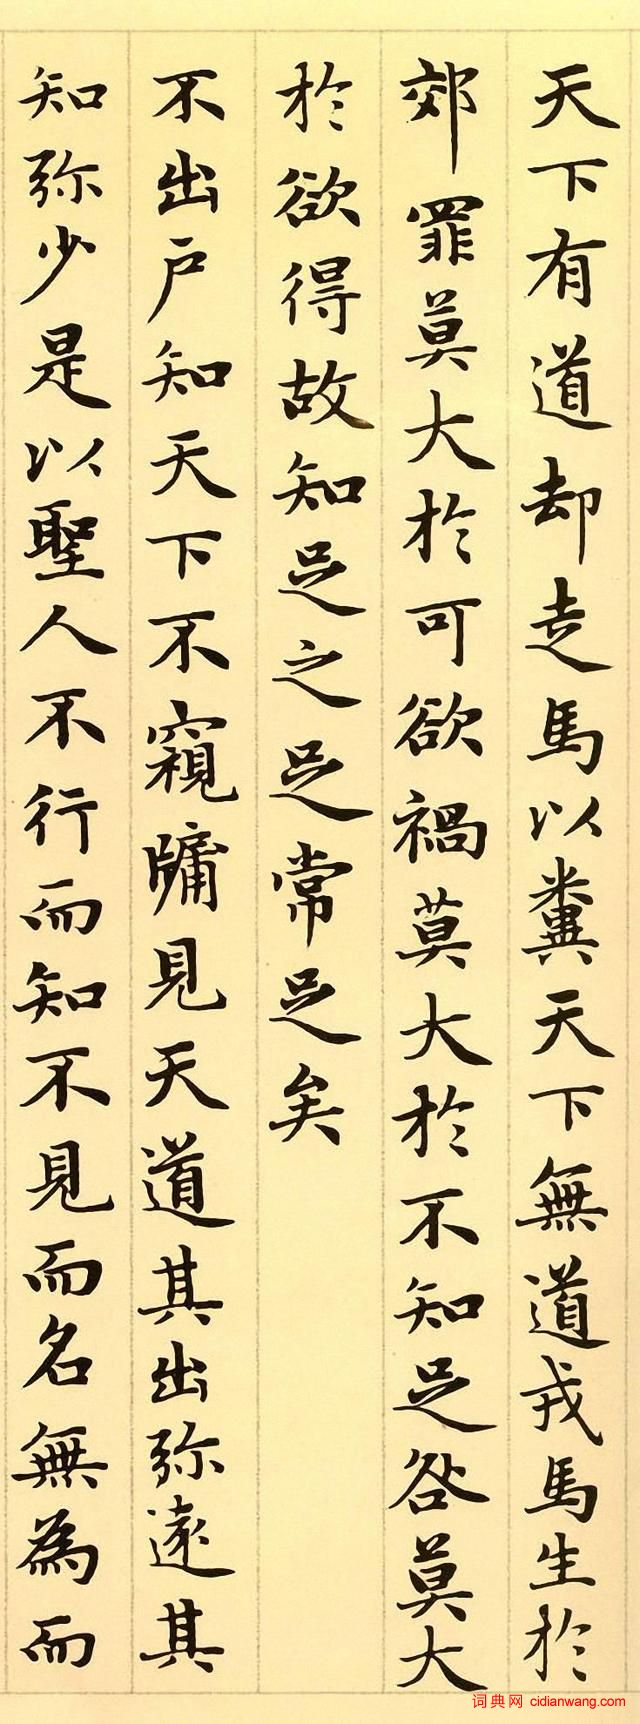 天下有道却走馬以糞天下無道戎馬生於
郊罪莫大於可欲禍莫大於不知足咎莫大
於欲得故知足之足常足矣
不出戶知天下不窺牖見天道其出弥遠其
知弥少是以聖人不行而知不見而名無為而
词典网 cidianwang.com